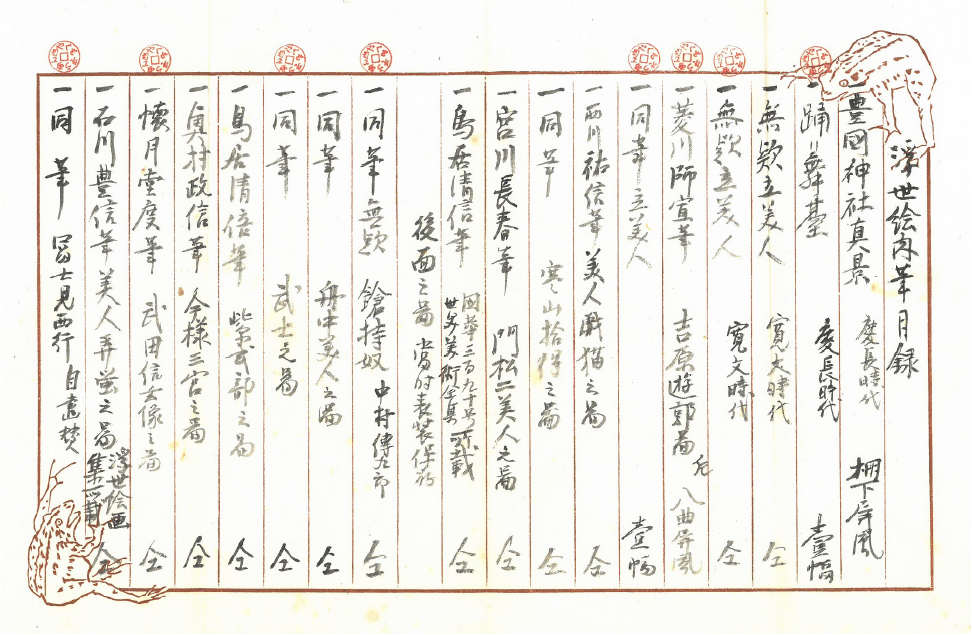 浮世絵肉筆目録
一豊國神社真景 慶長時代 棚下屏風
一踊リ舞基 慶長時代 壹幅
一無欵立美人 寛文時代 仝
一無欵立美人 寛文時代 仝
一菱川師宣筆 吉原遊郭啚 八曲屏風
一同筆立美人 壹幅
一西川祐信筆 美人戯猫之啚 仝
一同筆 寒山拾得之啚 仝
一宮川長春筆 門松二美人之啚 仝
一鳥居清信筆 國華三百九十号 世界美術全集 所載 仝
後面之啚 當時表装保存
一同筆 無欵 鎗持奴 中村傳九郎 仝
一同筆 舟中美人之啚 仝
一同筆 武士之啚 仝
一鳥居清倍筆 紫式部之啚 仝
一奥村政信筆 今様三宮之啚 仝
一懐月堂度筆 武田信玄像之啚 仝
一石川豊信筆 美人弄蛍之啚 浮世絵画集 仝
一同筆 冨士見西行 自畫賛